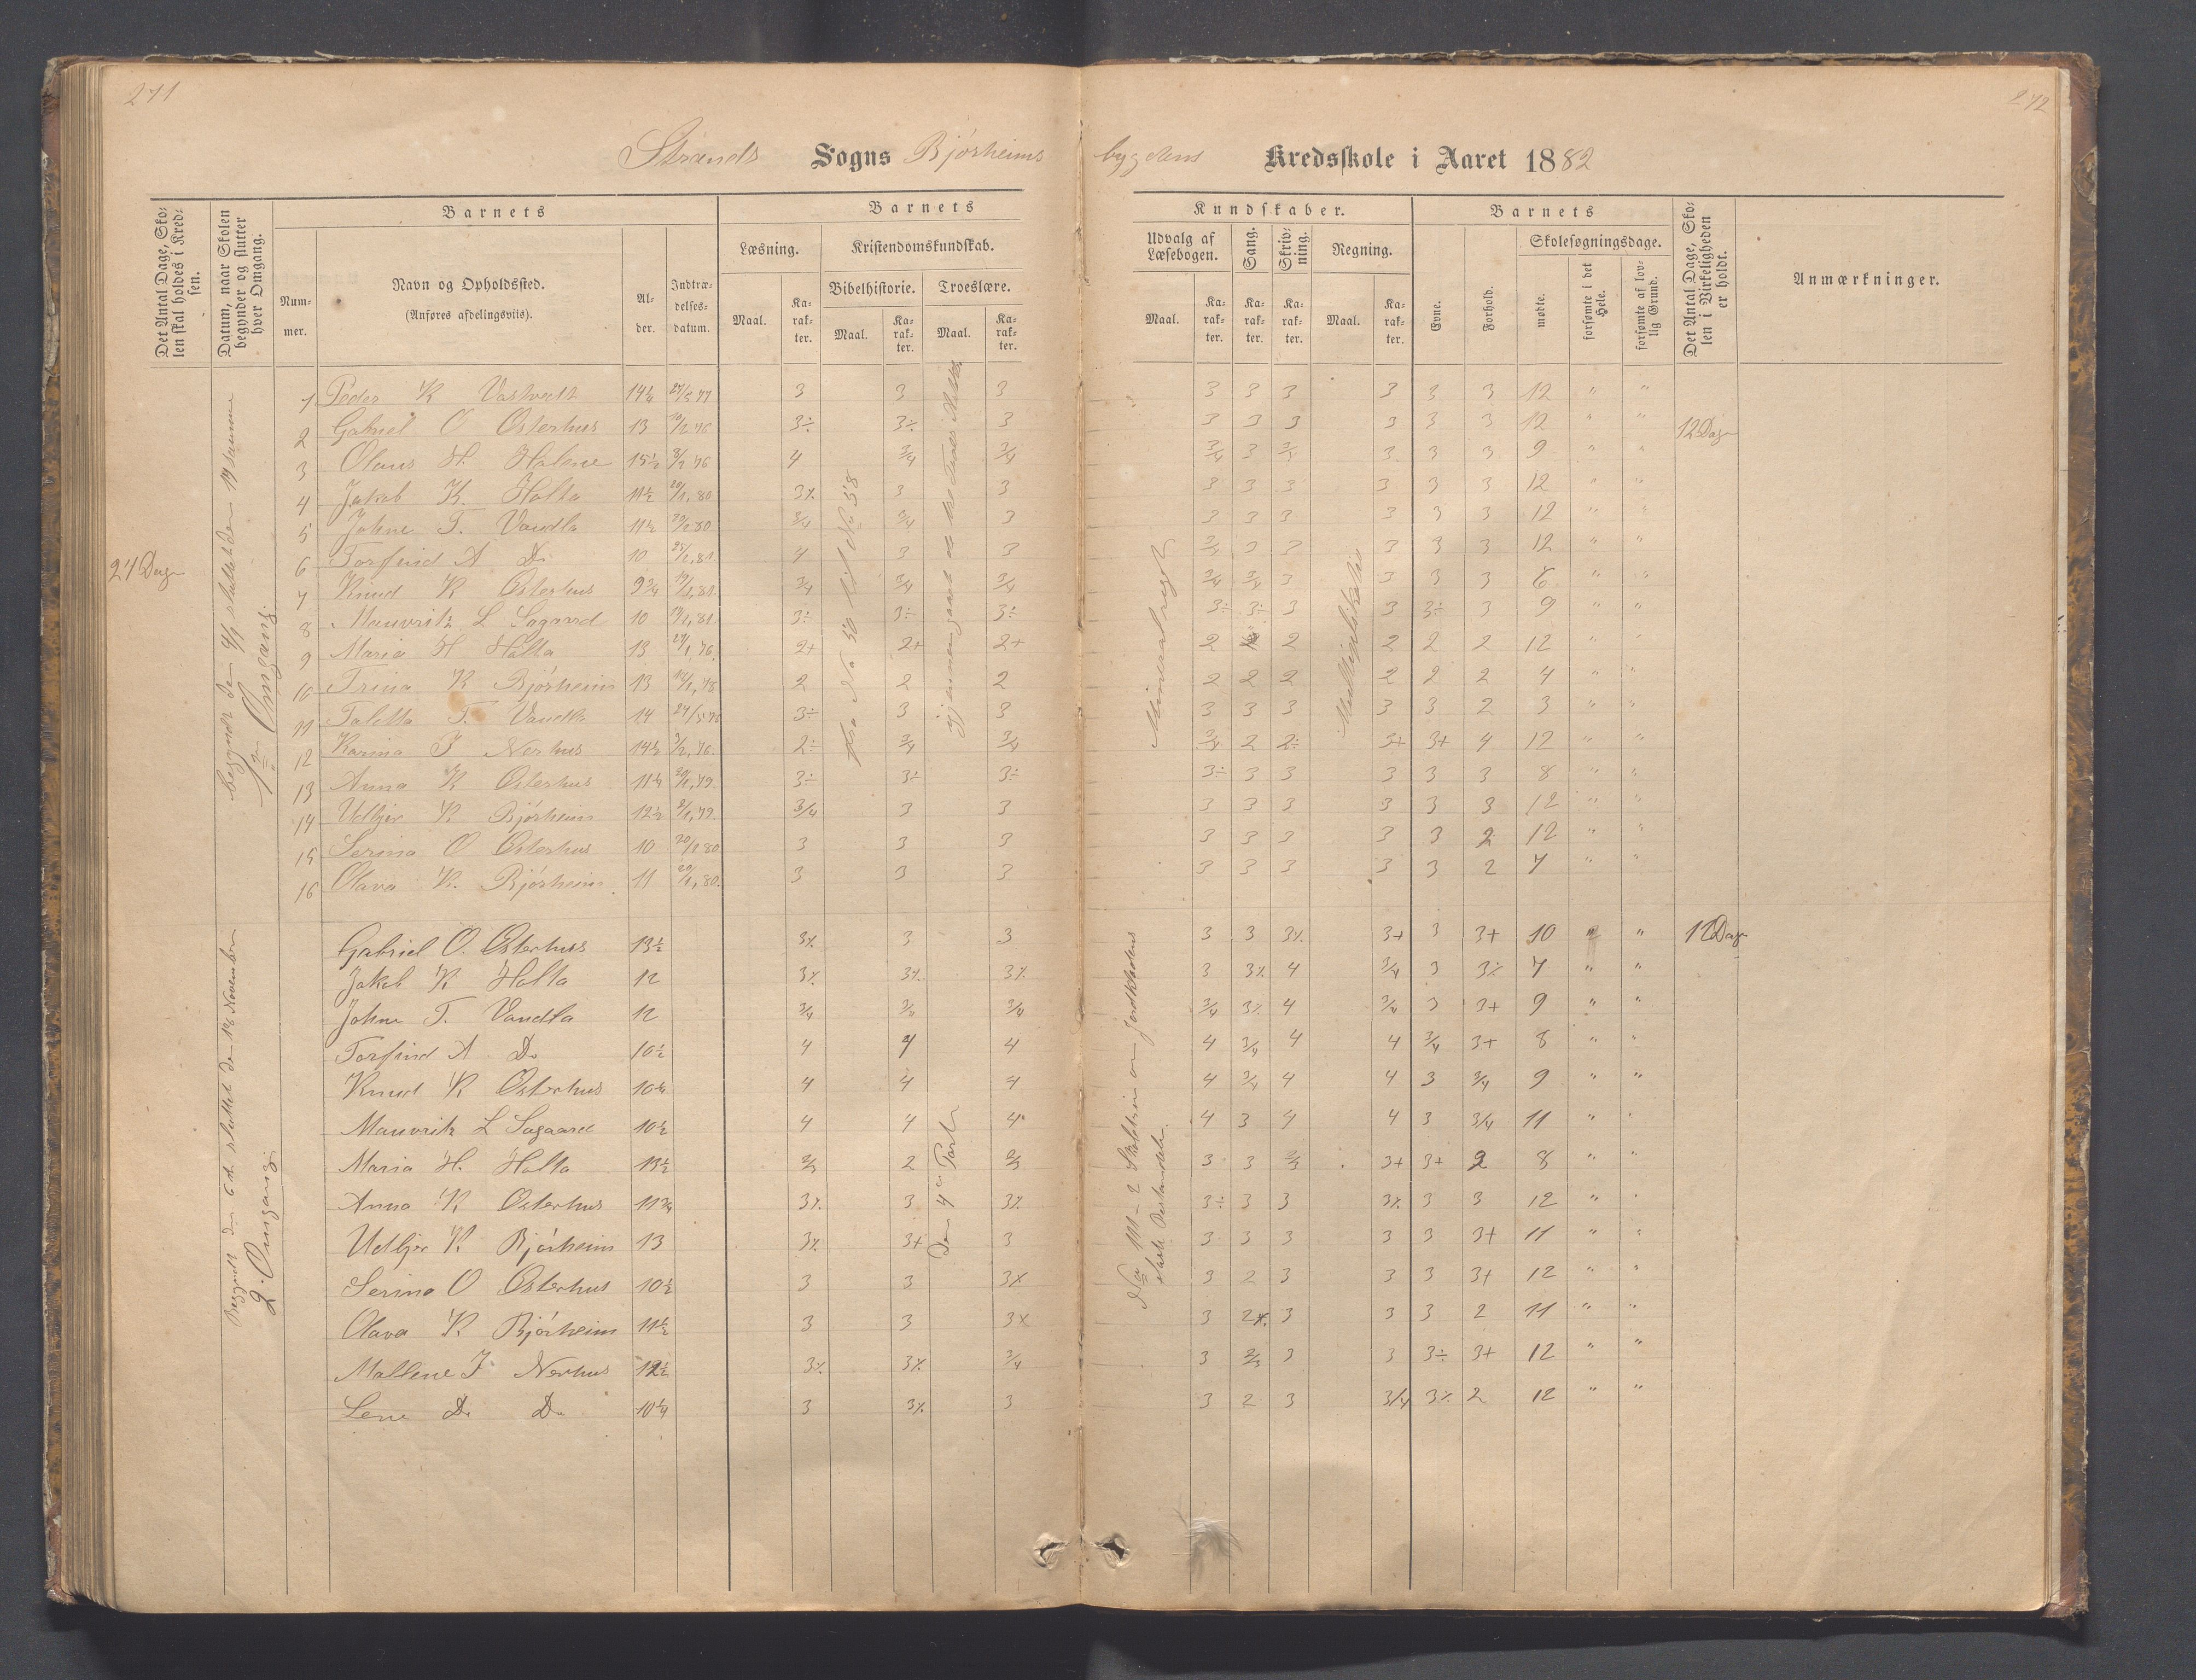 271
272
Strands Sogns Bjórheims bygdens Kredsskole i Aaret 1882
Det Antal Dage, Skolen skal holdes i Kredsen.
Datum, naar Skolen begynder og slutter hver Omgang.
Barnets
Nummer.
Navn og Opholdssted.
(Anføres afdelingsviis).
Alder.
Indtrædelses-datum.
Barnets
Læsning.
Maal.
Karakter.
Kristendomskundskab.
Bibelhistorie.
Maal.
Karakter.
Troeslære.
Maal.
Karakter.
Kundskaber.
Udvalg af Læsebogen.
Maal.
Karakter.
Sang.
Karakter.
Skrivning.
Karakter.
Regning.
Maal.
Karakter.
Barnets
Evne.
Forhold.
Skolesøgningsdage.
mødte.
forsømte i det Hele.
forsømte af lovlig Grund.
Det Antal Dage, Skolen i Virkeligheden er holdt.
Anmærkninger.
24 Dage
1ste Omgang
1 Peder K Vastvedt 14½ 3 3 3 3 3 3 3 3 3 12 " "
2 Gabriel O Osterhus 13 3÷ 3÷ 3 3 3 3 3 3 3 12 " " 12 Dage
3 Olaus H. Halene 15½ 4 3/4 3/4 3/4 3 3 3 3 9 " "
4 Jakob K. Holta 11½ 20/1, 80 3% 3 3 3 3 3 3 3 3 12 " "
5 Johne T. Vandla 11½ 3/4 3/4 3 3 3 3 3 3 3 12 " "
6 Torfind A Do 10 4 3 3 3 3 3 3 3 12 " "
7 Knud K Osterhus 9¾ 3/4 3/4 3/4 3/4 3/4 3 3 3 3 6 " "
8 Mauvritz L Sagaard 10 3÷ 3÷ 3÷ 3÷ 3÷ 3 3 3÷ 3 9 " "
9 Maria H Holta 13 2+ 2+ 2+ 2 2 2 2 2 12 " "
10 Trina K Bjórheim 13 2 2 2 2 2 2 2 2 2 4 " "
11 Taletta T. Vandla 14 3÷ 3 3 3 3 3 3 3 2 3 " "
12 Karina J Nerhus 14½ 2÷ 3/4 3/4 3/4 2 2÷ 3+ 3+ 4 12 " "
13 Anna K Osterhus 11¼ 3÷ 3÷ 3÷ 3÷ 3 3 3 3 3 8 " "
14 Udbjør K Bjórheim 12½ 3/4 3 3 3 3 3 3 3 3 12 " "
15 Serina O Osterhus 10 3 3 3 3 3 3 3 3 2 12 " "
16 Olava K. Bjórheim. 11 20/1, 80. 3 3 3 3 3 3 3 3 2 7 " "
Multiplikation
2. Omgang
Begyndt den 6te sluttet den 18 November
Den 4de Part
Gabriel O. Osterhus 13½ 3% 3 3 3 3 3% 3+ 3 3+ 10 " " 12 Dage
Jakob K Holta 12 3% 3% 3% 3 3% 4 3/4 3 3% 7 " "
Johne T. Vandla 12 3/4 3/4 3/4 3/4 3% 4 3/4 3 3+ 9 " "
Torfind A Do 10½ 4 4 4 4 3/4 4 4 3/4 3+ 8 " "
Knud K Osterhus 10¼ 4 4 4 4 3/4 4 4 3 3/4 9 " "
Mauvritz L Sagaard 10½ 4 4 4 4 3 4 4 3 3/4 11 " "
Maria H. Holta 13½ 2/3 2 2/3 3 3 2/3 3+ 3+ 2 8 " "
Anna K Osterhus 11¾ 3% 3 3% 3÷ 3 3 3% 3 3 12 " "
Udbjør K Bjórheim 13 3% 3+ 3 3 3 3 3 3 3+ 11 " "
Serina O Osterhus 10½ 3 3 3% 3 2 3 3 3 3+ 12 " "
Olava K Bjórheim 11½ 3 3 3% 3 2% 3 3 3 2 11 " "
Mallene J Nerhus 12½ 3% 3% 3/4 3 2/3 3 3 3÷ 3+ 12 " "
Lene Do Do 10¼ 3 3% 3 3 2 3 3/4 3% 2 12 " "